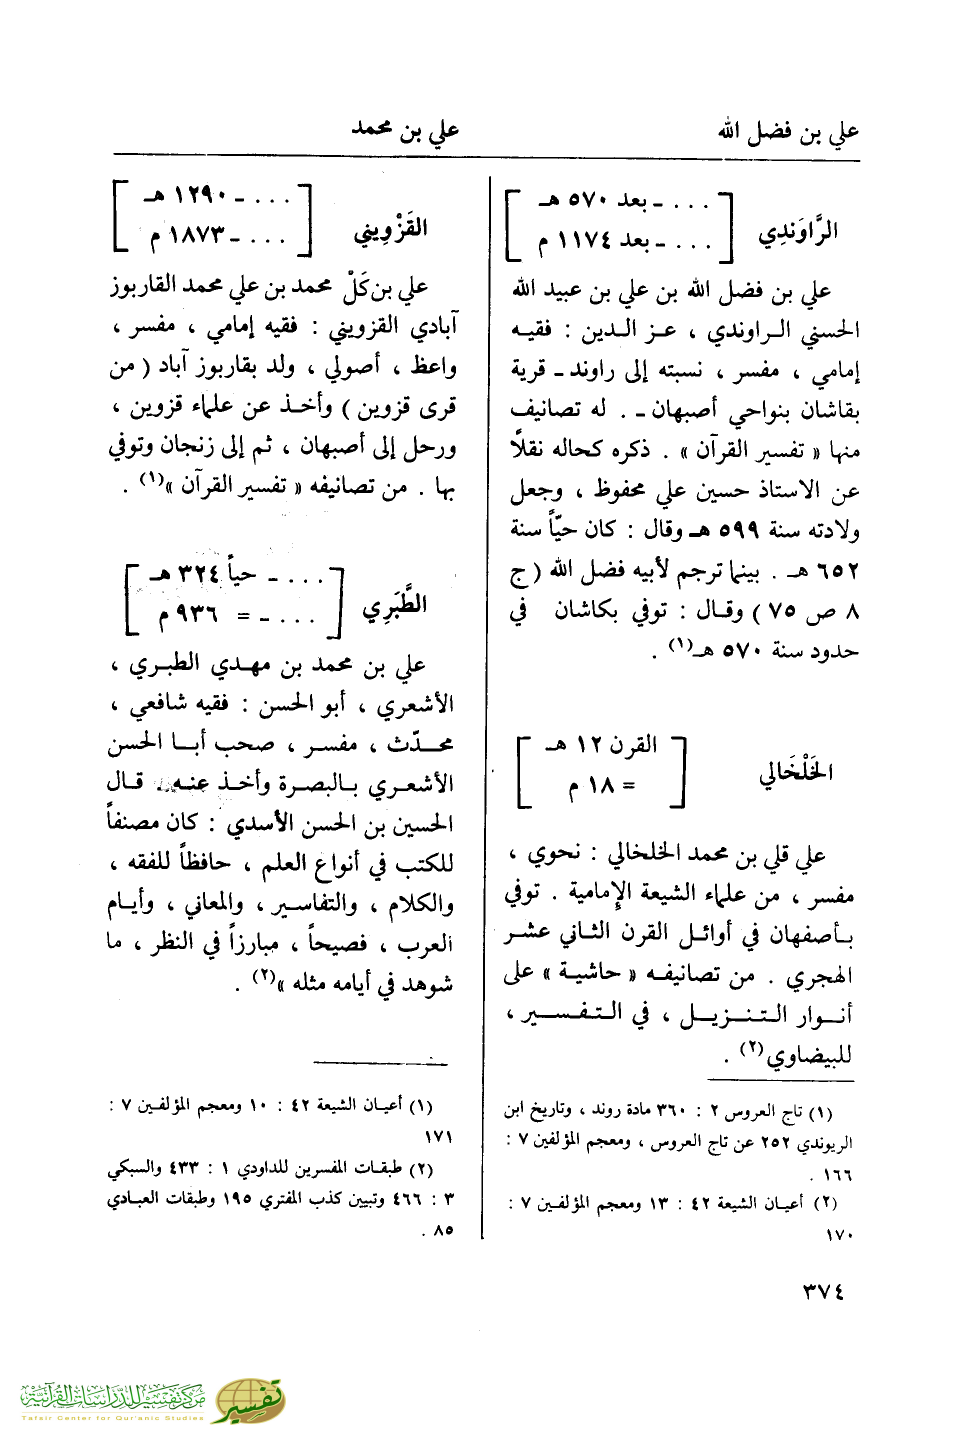 علي بن فضل الله
علي بن محمد
الرَّاوَندِي
. . . ـ بعد ٥٧٠ هـ
. . . ـ بعد ١١٧٤ م
علي بن فضل الله بن علي بن عبيد الله
الحسني الراوندي ، عز الدين : فقيه
إمامي ، مفسر ، نسبته إلى راوند ـ قرية
بقاشان بنواحي أصبهان ـ . له تصانيف
منها « تفسير القرآن » . ذكره كحاله نقلاً
عن الاستاذ حسين علي محفوظ ، وجعل
ولادته سنة ٥٩٩ هـ وقال : كان حيّاً سنة
٦٥٢ هـ . بينما ترجم لأبيه فضل الله ( ج
٨ ص ٧٥ ) وقال : توفي بكاشان في
حدود سنة ٥٧٠ هـ(١) .
الخَلْخَالي
القرن ١٢ هـ
= ١٨ م
علي قلي بن محمد الخلخالي : نحوي ،
مفسر ، من علماء الشيعة الإمامية . توفي
بأصفهان في أوائل القرن الثاني عشر
الهجري . من تصانيفه « حاشية » على
أنوار التنزيل ، في التفسير ،
للبيضاوي(٢) .
(١) تاج العروس ٢ : ٣٦٠ مادة روند ، وتاريخ ابن
الريوندي ٢٥٢ عن تاج العروس ، ومعجم المؤلفين ٧ :
١٦٦ .
(٢) أعيان الشيعة ٤٢ : ١٣ ومعجم المؤلفين ٧ :
١٧٠
القَزْوِيني
. . . ـ ١٢٩٠ هـ
. . . ـ ١٨٧٣ م
علي بن كَلْ محمد بن علي محمد القاربوز
آبادي القزويني : فقيه إمامي ، مفسر ،
واعظ ، أصولي ، ولد بقاربوز آباد ( من
قرى قزوين ) وأخذ عن علماء قزوين ،
ورحل إلى أصبهان ، ثم إلى زنجان وتوفي
بها . من تصانيفه « تفسير القرآن »(١) .
الطَّبَرِي
. . . ـ حياً ٣٢٤ هـ
. . . ـ = ٩٣٦ م
علي بن محمد بن مهدي الطبري ،
الأشعري ، أبو الحسن : فقيه شافعي ،
محدّث ، مفسر ، صحب أبا الحسن
الأشعري بالبصرة وأخذ عنه، قال
الحسين بن الحسن الأسدي : كان مصنفاً
للكتب في أنواع العلم ، حافظاً للفقه ،
والكلام ، والتفاسير ، والمعاني ، وأيام
العرب ، فصيحاً ، مبارزاً في النظر ، ما
شوهد في أيامه مثله »(٢) .
(١) أعيان الشيعة ٤٢ : ١٠ ومعجم المؤلفين ٧ :
١٧١
(٢) طبقات المفسرين للداودي ١ : ٤٣٣ والسبكي
٣ : ٤٦٦ وتبيين كذب المفتري ١٩٥ وطبقات العبادي
٨٥ .
٣٧٤
مركز تفسير للدراسات القرآنية
Tafsir Center for Qur'anic Studies
تفسير